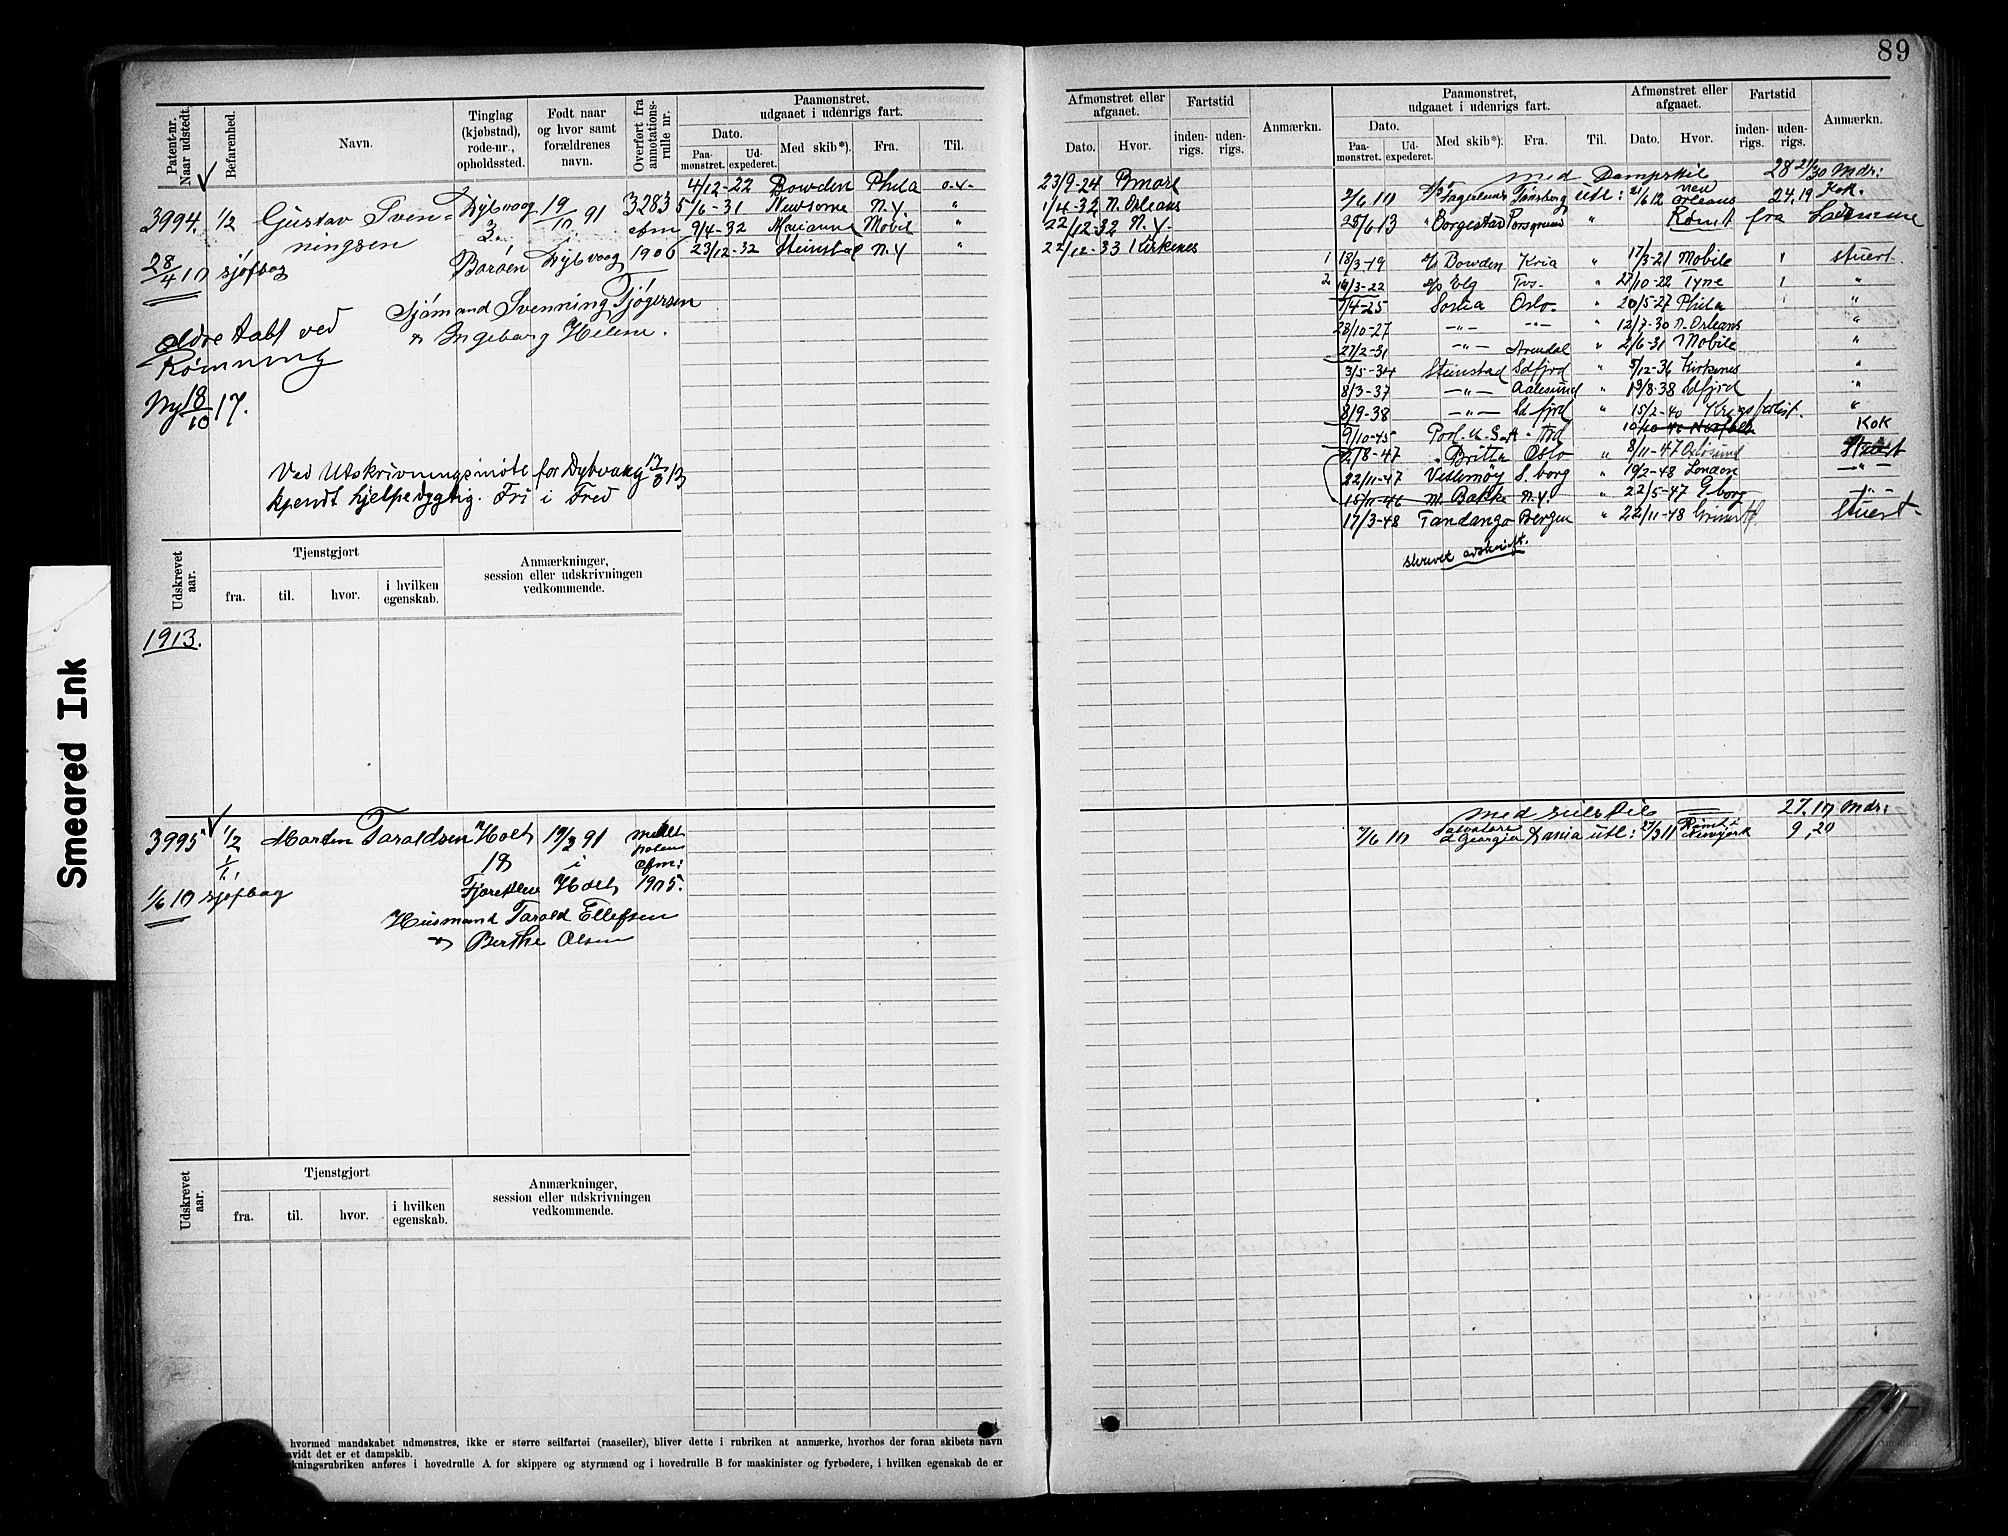 89
Smeared Ink
Patent-nr. Naar udstedt.
Befarenhed.
Navn.
Tinglag (kjøbstad), rode-nr., opholdssted.
Født naar og hvor samt forældrenes navn.
Overført fra annotationsrulle nr.
Paamønstret, udgaaet i udenrigs fart.
Dato.
Paamønstret.
Udexpederet.
Med skib*).
Fra.
Til.
3994. 1/2 Gustav Svenningsen Dybvaag 19/10 91 3283
3. afm
28/4 10 sjøfbog Barøen Dybvaag 1906
Sjømand Svenning Tjøgersen
& Ingeborg Helene.
ældre tabt ved
Rømning
Ny 18/10 17.
Ved Utskrivningsmøte for Dybvaag
kjendt hjelpedygtig. Fri i Fred
4/12-22 Bowden Phila
5/6-31 Newsome N.Y. "
9/4-32 Marianne Mobil "
23/12-32 Steinstad N.Y "
Udskrevet aar.
Tjenstgjort
fra.
til.
hvor.
i hvilken egenskab.
Anmærkninger, session eller udskrivningen vedkommende.
1913.
3995 1/2 Marten Taraldsen Holt 17/2 91
18 i
1/6 10 sjøfbog Holt 1905.
Husmand Tarald Ellefsen
& Berthe Olsen
Udskrevet aar.
Tjenstgjort
fra.
til.
hvor.
i hvilken egenskab.
Anmærkninger, session eller udskrivningen vedkommende.
hvormed mandskabet udmønstres, ikke er større seilfartøi (raaseiler), bliver dette i rubriken at anmærke, hvorhos der foran skibets navn
avidt det er et dampskib.
kningsrubriken anføres i hovedrulle A for skippere og styrmænd og i hovedrulle B for maskinister og fyrbødere, i hvilken egenskab de er
Afmønstret eller afgaaet.
Dato.
Hvor.
Fartstid
indenrigs.
udenrigs.
Anmærkn.
Paamønstret, udgaaet i udenrigs fart.
Dato.
Paamønstret.
Udexpederet.
Med skib*).
Fra.
Til.
Afmønstret eller afgaaet.
Dato.
Hvor.
Fartstid
indenrigs.
udenrigs.
Anmærkn.
23/9-24 Bmore
1/4-32 N. Orleans
22/12-32 N.Y.
22/12-33 Kirkenes
med Dampskib 28 21/30 Mdr:
2/6 10 Tønsberg utl: 21/6 12 new orleans 24.19 Kok.
25/6 13 " Borgestad Porsgrund " Rømt fra
1 18/3-19 Bowden Kria " 17/3-21 Mobile stuert.
2 19/3-22 Elg Tvs- " 27/10-22 Tyne "
7/4-25 Sonia Oslo " 20/5-27 Phila "
28/10-27 -"- -"- " 12/7-30 N. Orleans "
27/2-31 -"- Arendal " 2/6-31 Mobile "
3/5-34 Steinstad Sdfjrd " 5/12-36 Kirkenes "
8/3-37 -"- Aalesund " 19/8-38 Sdfjrd "
8/9-38 -"- Sd fjrd " 15/2-40 Krigsforlist. "
9/10-45 Kok
2/8-47 " Britta Oslo " 8/11-47
22/11-47 Vestmøy S. borg " 19/2-48 London -"-
15/11-46 M. Bakke N.Y " 22/5-47 G borg
17/3-48 Fandango Bergen " 22/11-48 Stuert-
skrevet avskrift.
med seilskib 27.10 Mdr:
7/6 10 Salvatore d Georgia utl: 27/3 11 Rømt i Newyork 9,20